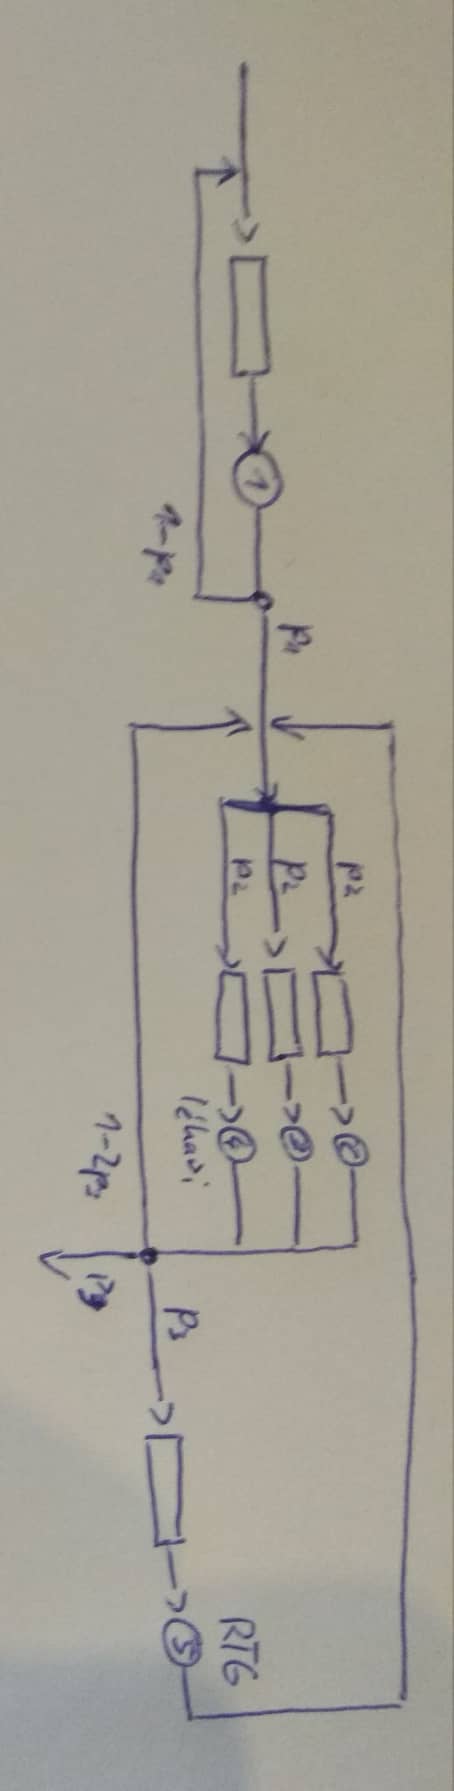 1
1-p₁
p₁
p₂
p₂
p₂
2
3
4
lékaři
1-2p₃
p₃
p₃
5
RTG